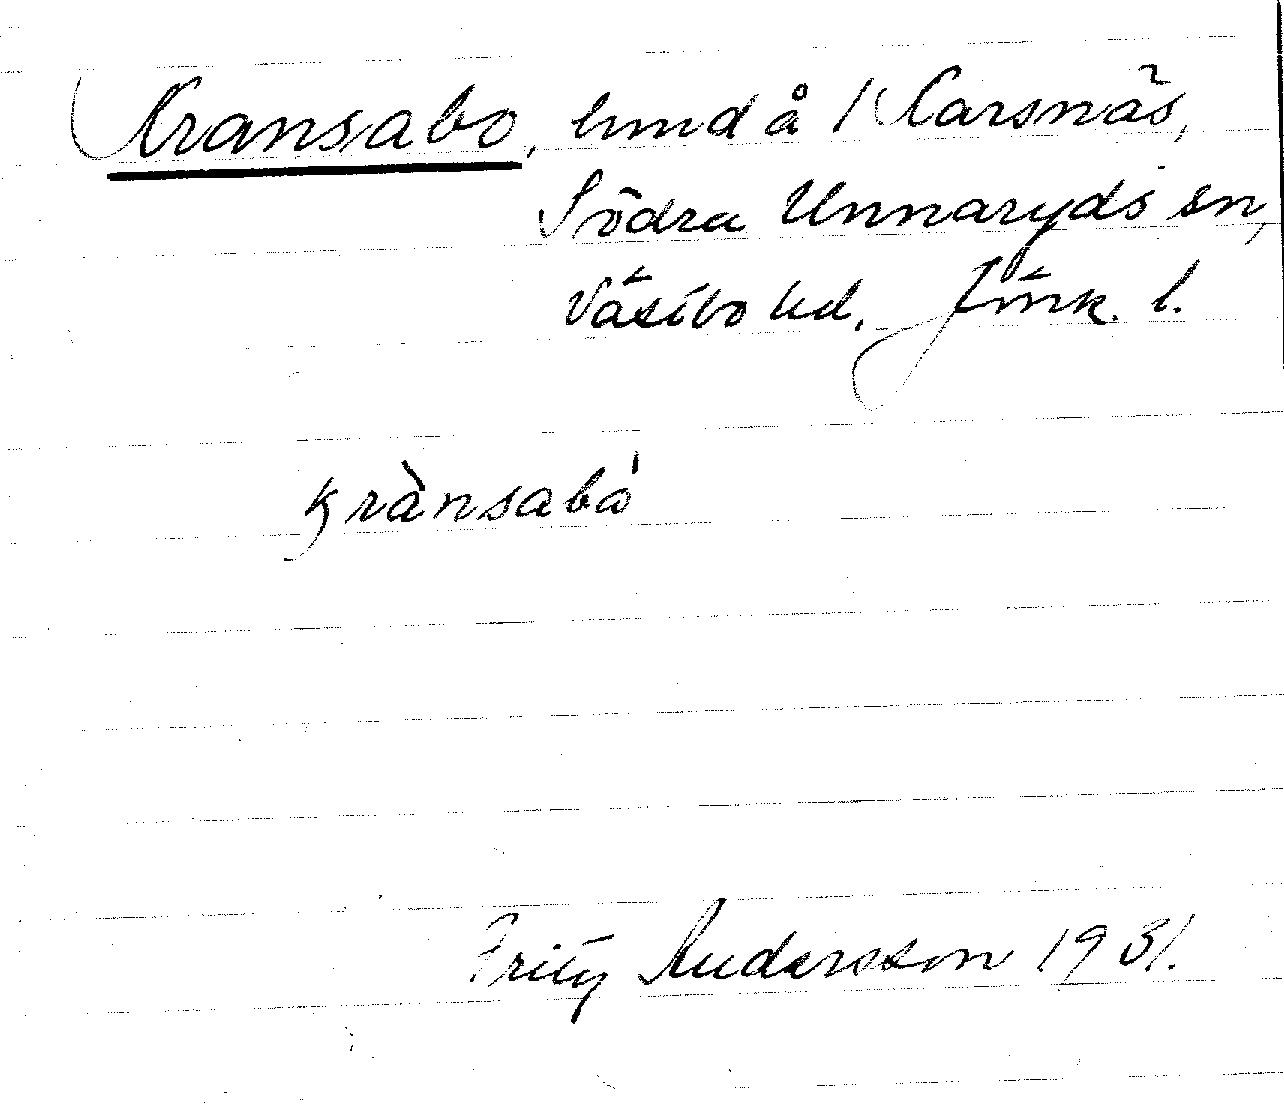 Kransabo, lund å Karsnäs,
Södra Unnaryds sn,
Västbo hd. Jönk. l.
krànsabó
Fritz Andersson 1931.